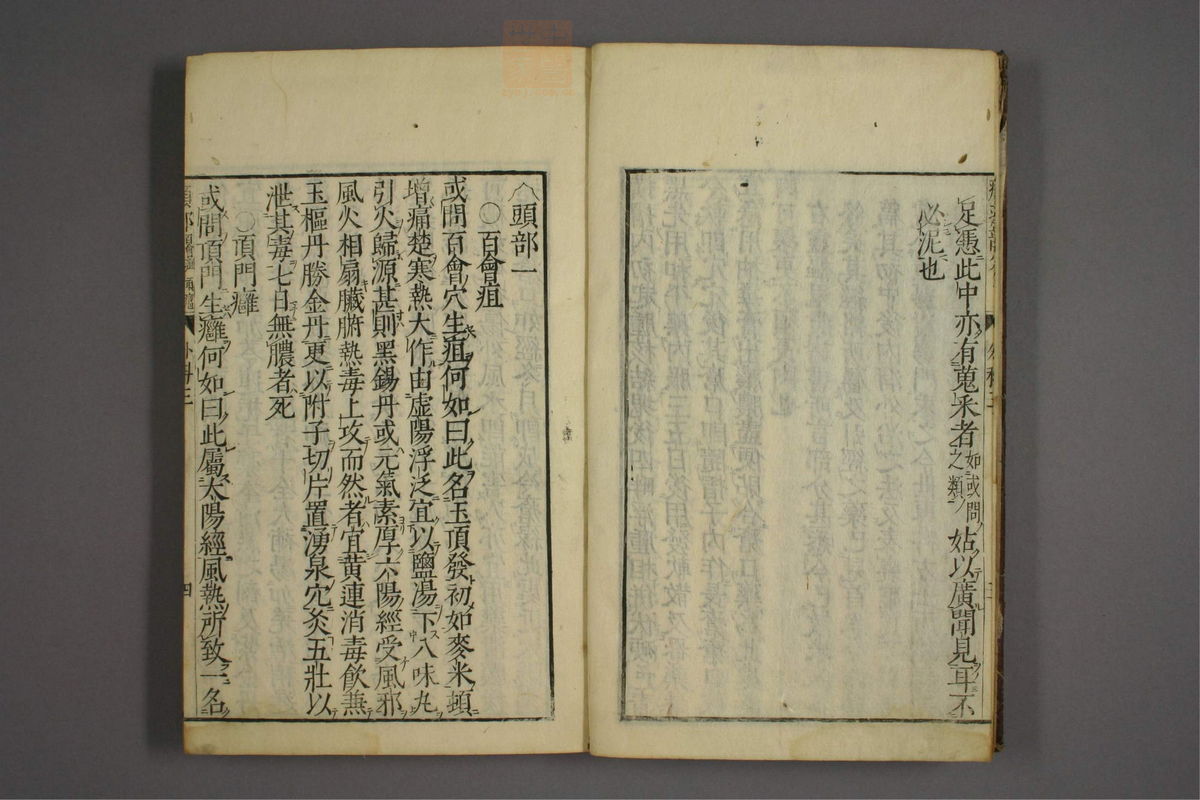 足憑此中亦有蒐釆者如或問之類姑以廣聞見耳不
必泥也
頭部一
○百會疽
或問百會穴生疽何如曰此名玉頂發初如麥米頓
增痛楚寒熱大作由虛陽浮泛宜以鹽湯下八味丸
引火歸源甚則黑錫丹或元氣素厚六陽經受風邪
風火相扇臟腑熱毒上攻而然者宜黃連消毒飲兼
玉樞丹勝金丹更以附子切片置湧泉穴灸五壯以
泄其毒七日無膿者死
○頂門癰
或問頂門生癰何如曰此屬太陽經風熱所致一名
四